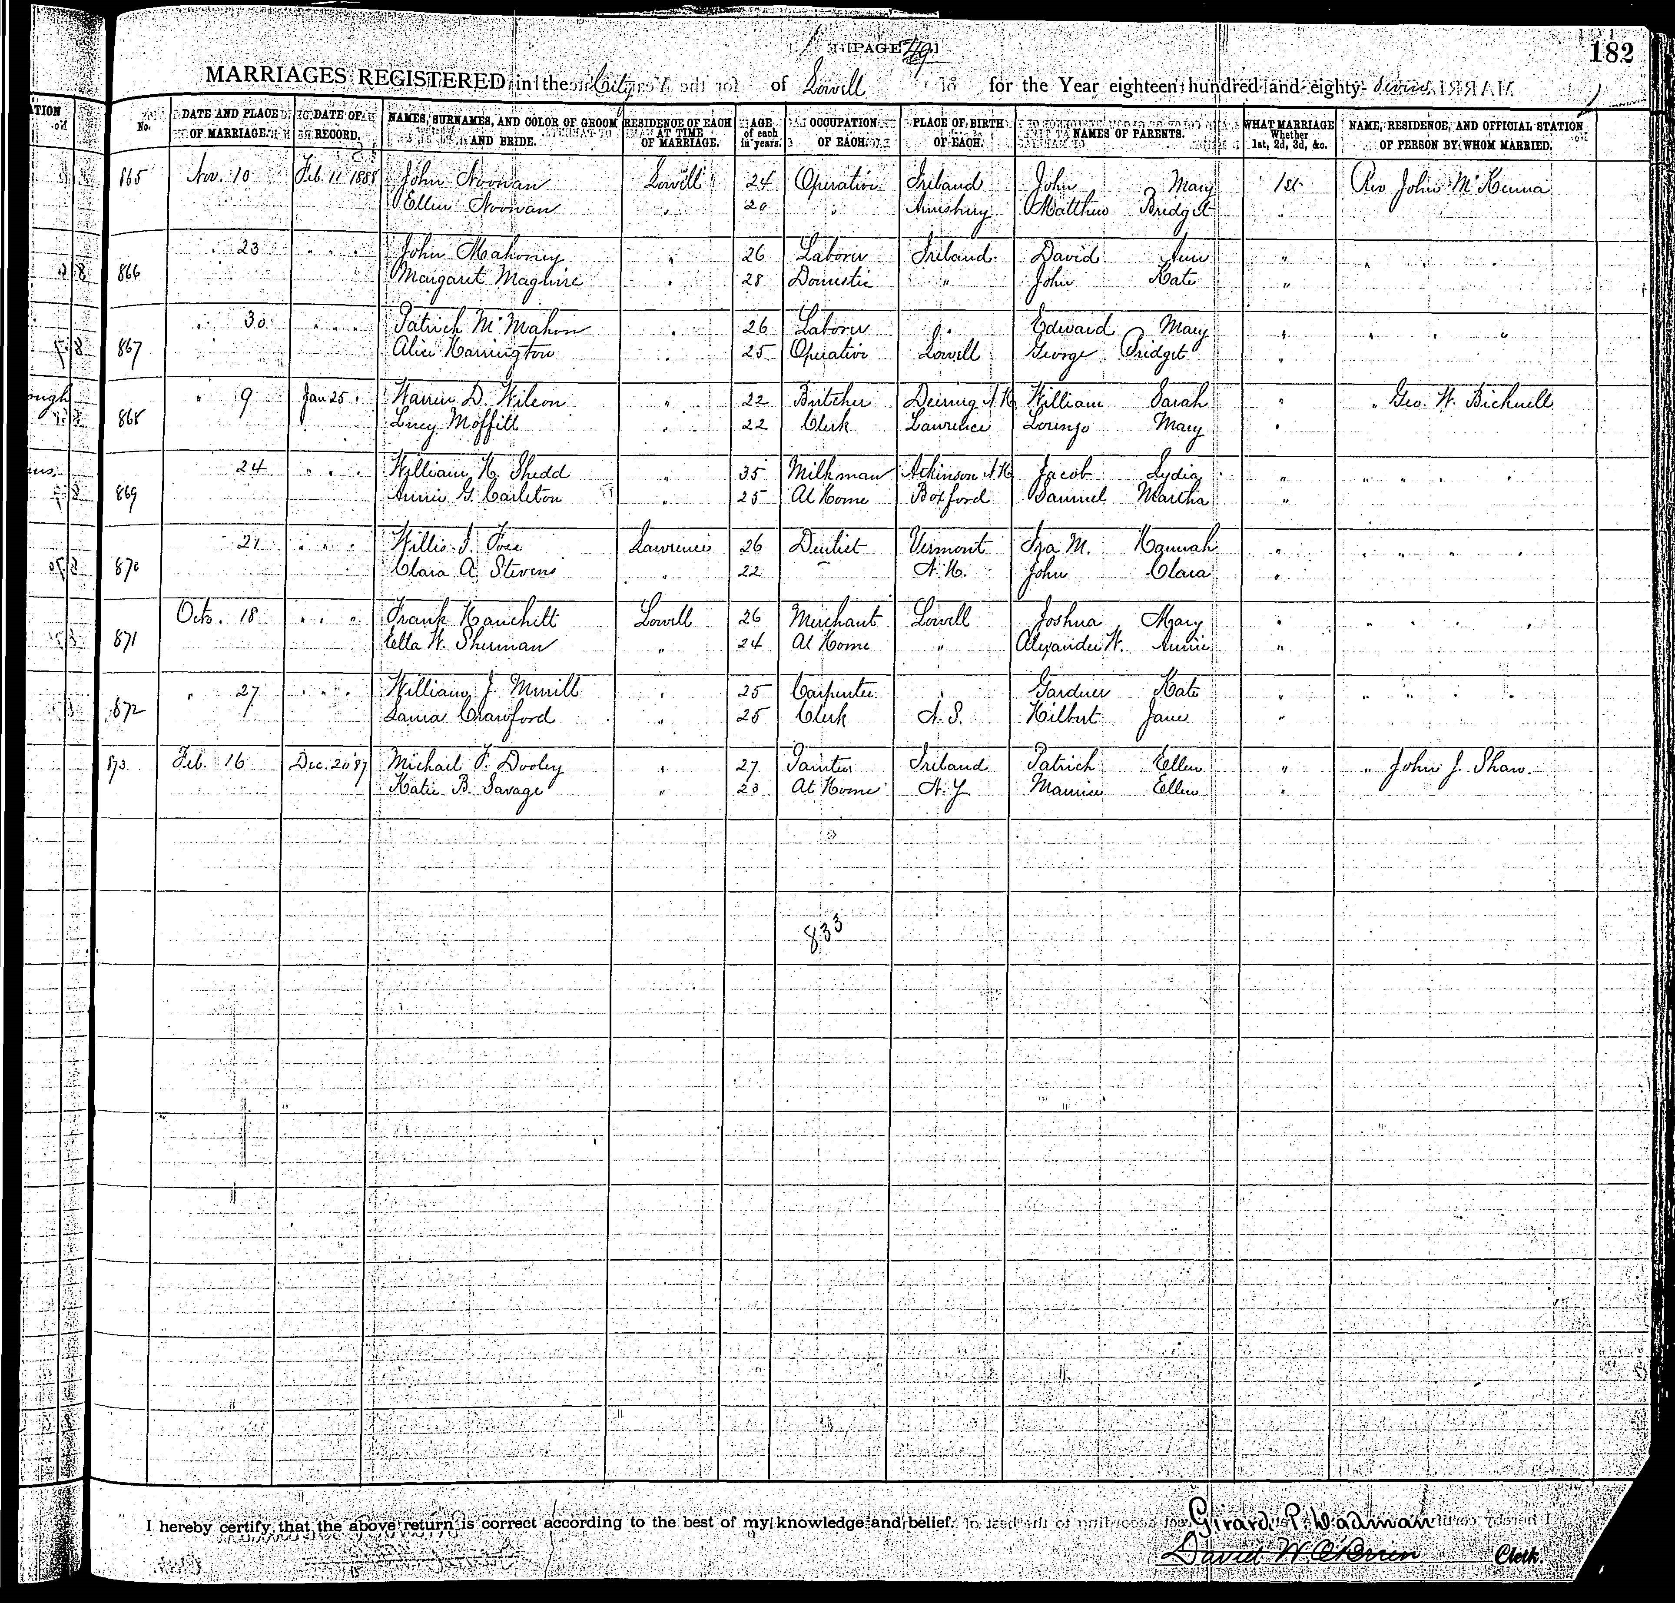 [PAGE 49]
182
MARRIAGES REGISTERED in the City of Lowell for the Year eighteen hundred and eighty-seven
No. DATE AND PLACE OF MARRIAGE. DATE OF RECORD. NAMES, SURNAMES, AND COLOR OF GROOM AND BRIDE. RESIDENCE OF EACH AT TIME OF MARRIAGE. AGE of each in years. OCCUPATION OF EACH. PLACE OF BIRTH OF EACH. NAMES OF PARENTS. WHAT MARRIAGE Whether 1st, 2d, 3d, &c. NAME, RESIDENCE, AND OFFICIAL STATION OF PERSON BY WHOM MARRIED.
865 Nov. 10 Feb. 11 1888 John Noonan Lowell 24 Operative Ireland John Mary 1st Rev John McKenna
Ellen Noonan " 20 " Amesbury Matthew Bridget "
866 " 23 " " " John Mahoney " 26 Laborer Ireland David Ann " " " " "
Margaret Maguire " 28 Domestic " John Kate "
867 " 30 " " " Patrick McMahon " 26 Laborer " Edward Mary " " " "
Alice Harrington " 25 Operative Lowell George Bridget "
868 " 9 Jan 25 " Warren D. Wilson " 22 Butcher Deering N.H. William Sarah " " Geo. W. Bicknell
Lucy Moffitt " 22 Clerk Lawrence Lorenzo Mary "
869 24 " " " William H. Shedd " 35 Milkman Atkinson N.H. Jacob Lydia " " " " "
Annie G. Carleton " 25 At Home Boxford Samuel Martha "
870 21 " " " Willis J. Foss Lawrence 26 Dentist Vermont Ira M. Hannah " " " " "
Clara A. Stevens " 22 N.H. John Clara "
871 Octo. 18 " " " Frank Hanchett Lowell 26 Merchant Lowell Joshua Mary " " " " "
Ella W. Sherman " 24 At Home " Alexander W. Annie "
872 " 27 " " " William J. Merrill " 25 Carpenter " Gardner Kate " " " " "
Laura Crawford " 25 Clerk N.S. Hilbert Jane "
873 Feb. 16 Dec. 20 '87 Michael F. Dooley " 27 Painter Ireland Patrick Ellen " " John J. Shaw
Katie B. Savage " 23 At Home N.Y. Maurice Ellen "
833
I hereby certify that the above return is correct according to the best of my knowledge and belief.
Girard P. Wadman
David W. O'Brien Clerk.